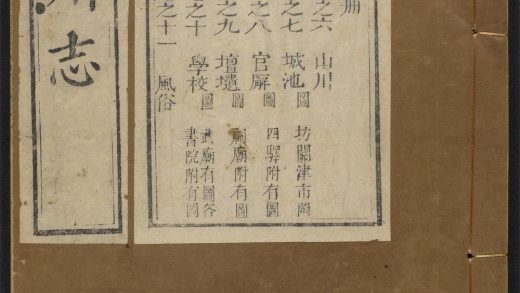 冊
之六 山川
之七 城池圖 坊關津市附
之八 官廨圖 四驛附有圖
之九 壇壝圖 祠廟附有圖
之十 學校圖 武廟有圖各
書院附有圖
之十一 風俗
志